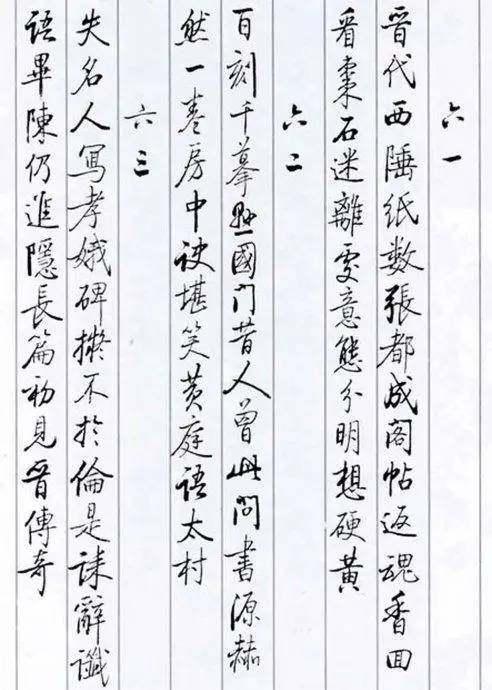 六一
晉代西陲紙数張都成閣帖返魂香回
看棗石迷離處意態分明想硬黄
六二
百刻千摹懸國門昔人曾此問書源赫
然一卷房中訣堪笑黄庭語太村
六三
失名人寫孝娥碑擬不於倫是誄辭讖
語畢陳仍進隱長篇初見晉傳奇